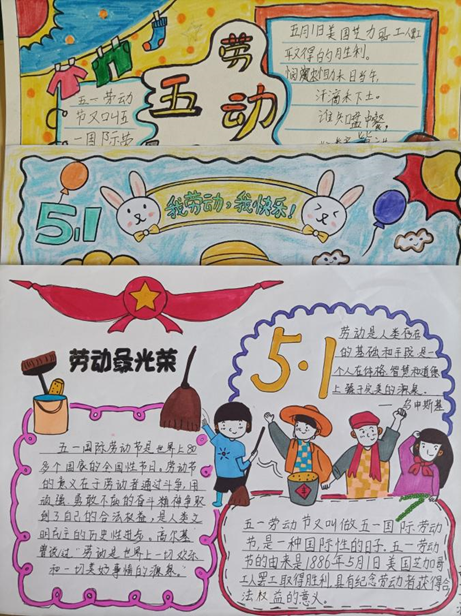 劳
五动
五月1日美国芝力哥工人
取得的月生利。
锄禾日当午,
汗滴禾下土。
谁知盘中餐,
五一劳动
节又叫五
一国际劳
5.1
我劳动,我快乐!
劳动最光荣
5·1
劳动是人类存在
的基础和手段,是一
个人在体格、智慧和道德
上臻于完美的源泉。
——乌申斯基
五一国际劳动节是世界上80
多个国家的全国性节日。劳动节
的意义在于劳动者通过斗争,用
顽强、勇敢不屈的奋斗精神争取
到了自己的合法权益,是人类文
明民主的历史性进步。高尔基
曾说过"劳动是世界上一切欢乐
和一切美好事情的源泉。"
五一劳动节又叫做五一国际劳动
节,是一种国际性的日子。五一劳动
节的由来是1886年5月1日美国芝加哥
工人罢工取得胜利,具有纪念劳动者获得合
法权益的意义。